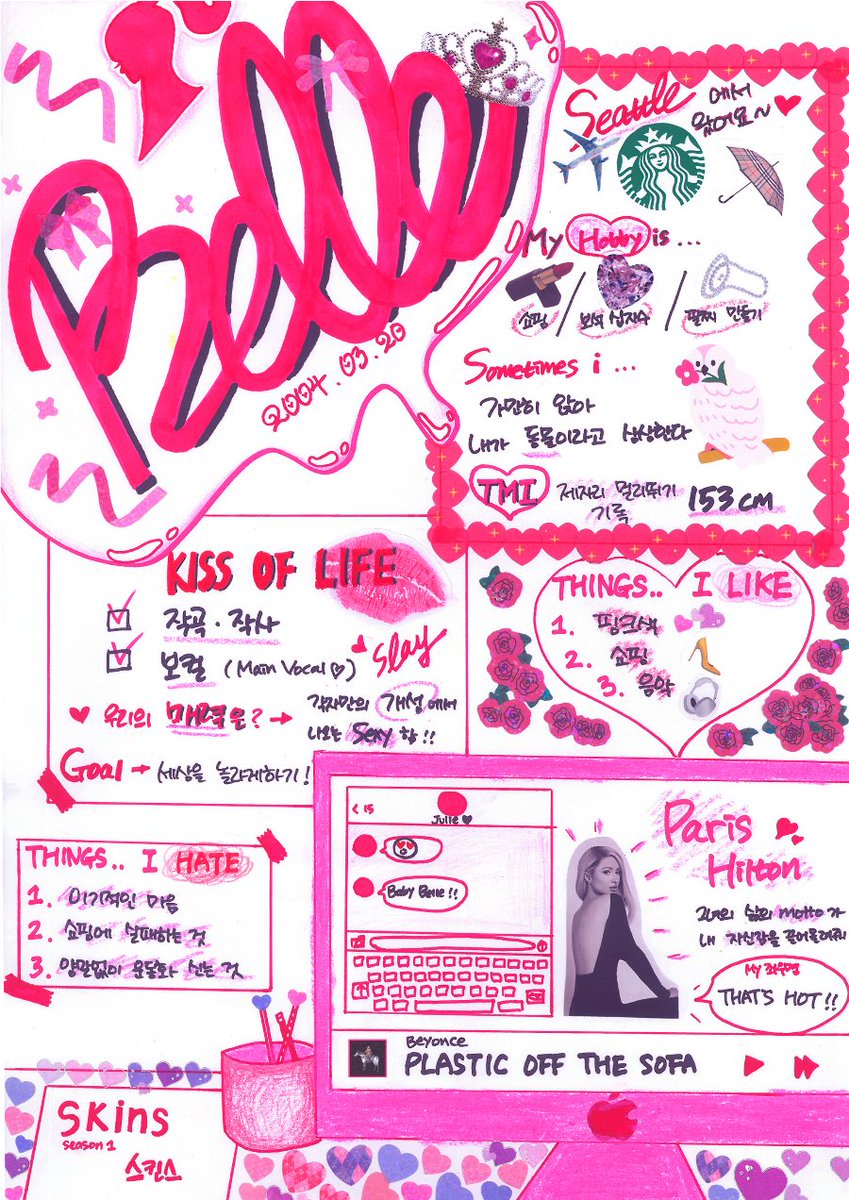 Belle
2004.03.20
Seattle 에서
왔어요~
My Hobby is ...
쇼핑 / 보석 십자수 / 팔찌 만들기
Sometimes i ...
가만히 앉아
내가 동물이라고 상상한다
TMI 제자리 멀리뛰기
기록 153cm
KISS OF LIFE
작곡·작사
보컬 (Main Vocal♡)
Slay
♥ 우리의 매력은? → 각자만의 개성에서
나오는 Sexy 함!!
Goal → 세상을 놀라게하기!
THINGS.. I LIKE
1. 핑크색
2. 쇼핑
3. 음악
THINGS.. I HATE
1. 이기적인 마음
2. 쇼핑에 실패하는 것
3. 양말없이 운동화 신는 것
< 15
Julie ♥
Baby Belle!!
Paris
Hilton
그녀의 삶의 motto가
내 자신감을 끌어올려줘
My 좌우명
THAT'S HOT!!
Beyonce
PLASTIC OFF THE SOFA
Skins
season 1
스킨스